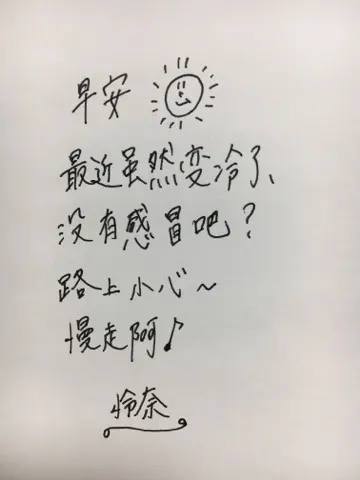 早安
最近虽然变冷了、
没有感冒吧？
路上小心～
慢走阿♪
怜奈